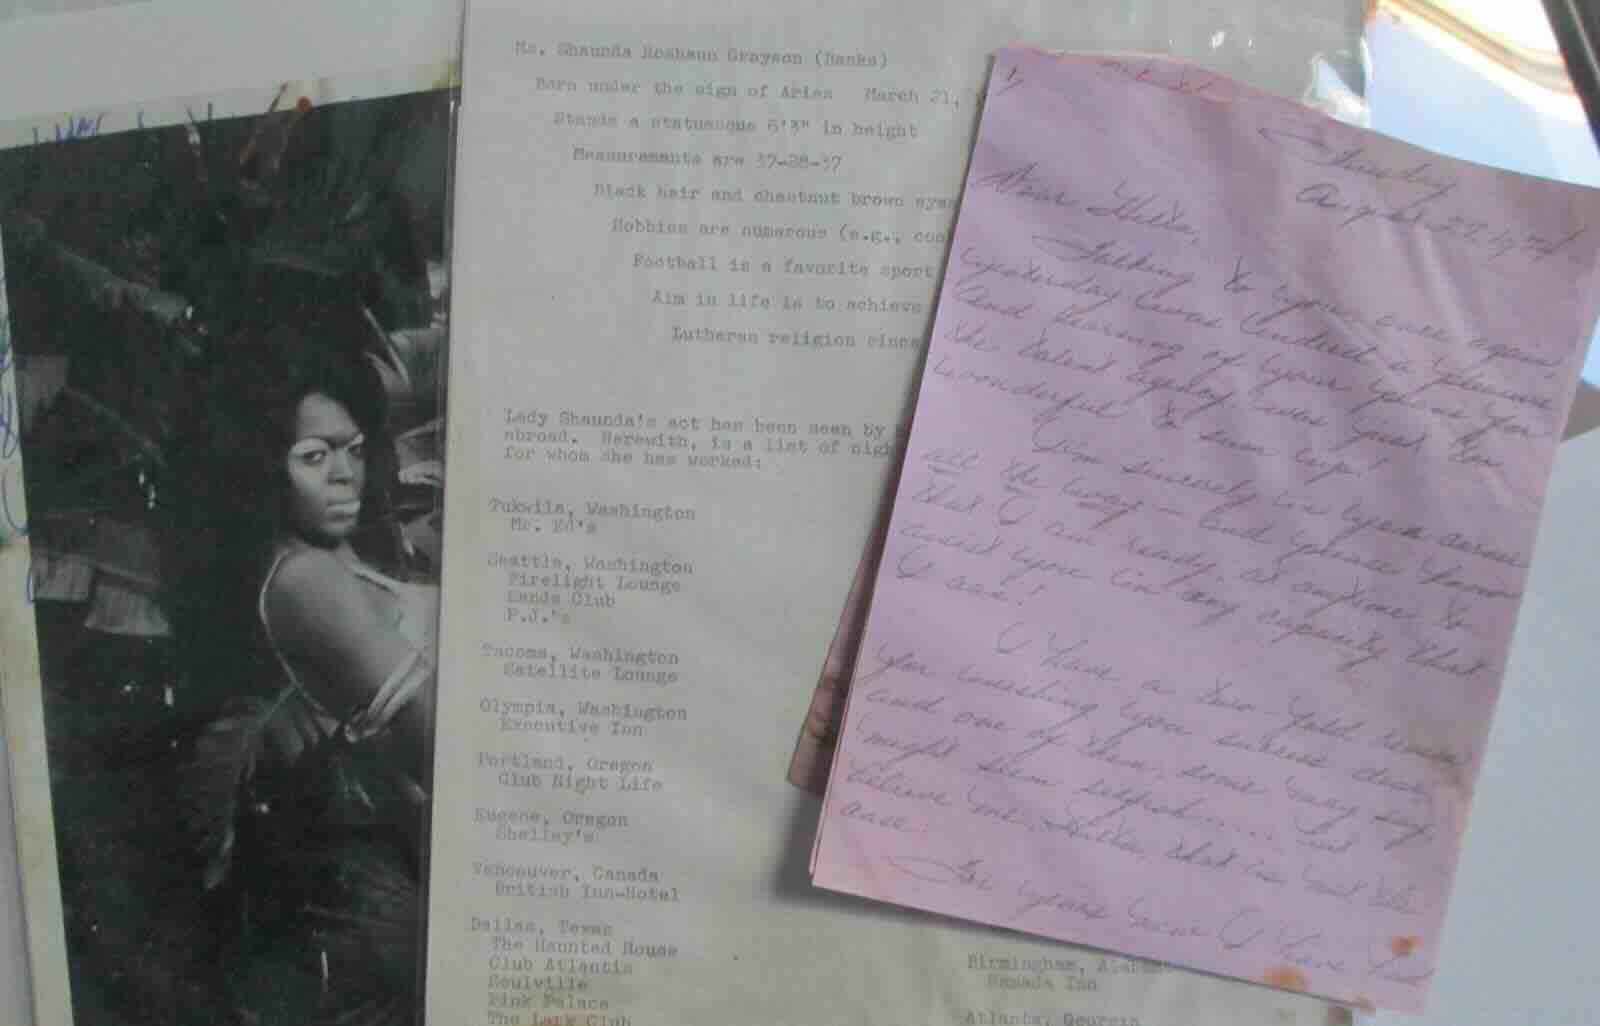 Ms. Shaunda Roshaun Grayson (Banks)
Born under the sign of Aries March 21,
Stands a statuesque 6'3" in height
Measurements are 37-28-37
Black hair and chestnut brown eyes
Hobbies are numerous (e.g., coo
Football is a favorite sport
Aim in life is to achieve
Lutheran religion since
Lady Shaunda's act has been seen by
abroad. Herewith, is a list of nigh
for whom she has worked:
Tukwila, Washington
Mr. Ed's
Seattle, Washington
Firelight Lounge
Sands Club
P.J.'s
Tacoma, Washington
Satellite Lounge
Olympia, Washington
Executive Inn
Portland, Oregon
Club Night Life
Eugene, Oregon
Shelley's
Vancouver, Canada
British Inn-Hotel
Dallas, Texas
The Haunted House
Club Atlantis
Soulville
Pink Palace
The Lark Club
Birmingham, Alabama
Ramada Inn
Atlanta, Georgia
1,
August 27, 1974
Dear
Talking to you once again,
yesterday was indeed a pleasure
and hearing of your plans for
the talent agency was just too
wonderful to sum up!
I'm sincerely in your corner
all the way — and please know
that I am ready, at anytime to
assist you in any capacity that
I can!
I have a two fold reason
for wishing you success dear,
and one of them, some may say,
might seem selfish..... but
believe me, that is not the
case!
For years now I have had